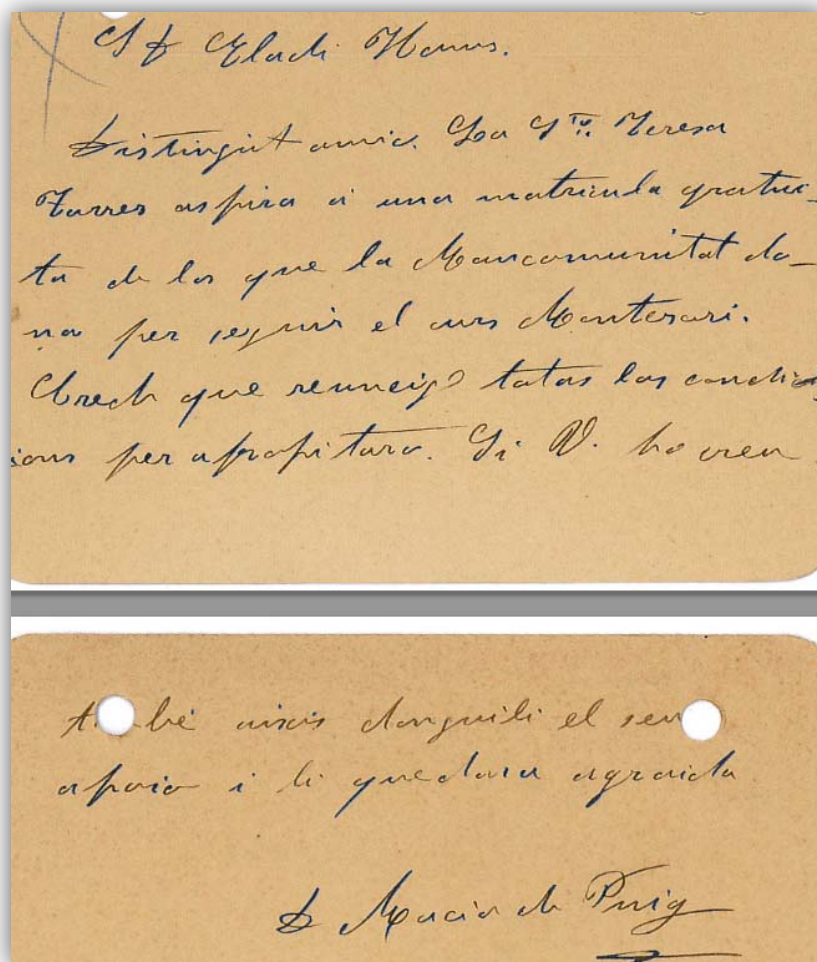 Sr Eladi Homs.
Distingit amic. La Sta. Teresa
Torres aspira a una matricula gratui-
ta de las que la Mancomunitat do-
na per seguir el curs Montesori.
Crech que reuneix totas las condi
cions per aprofitaro. Si V. ho creu
bé aixis donguili el seu
apoio i li quedara agraida
D Macia de Puig